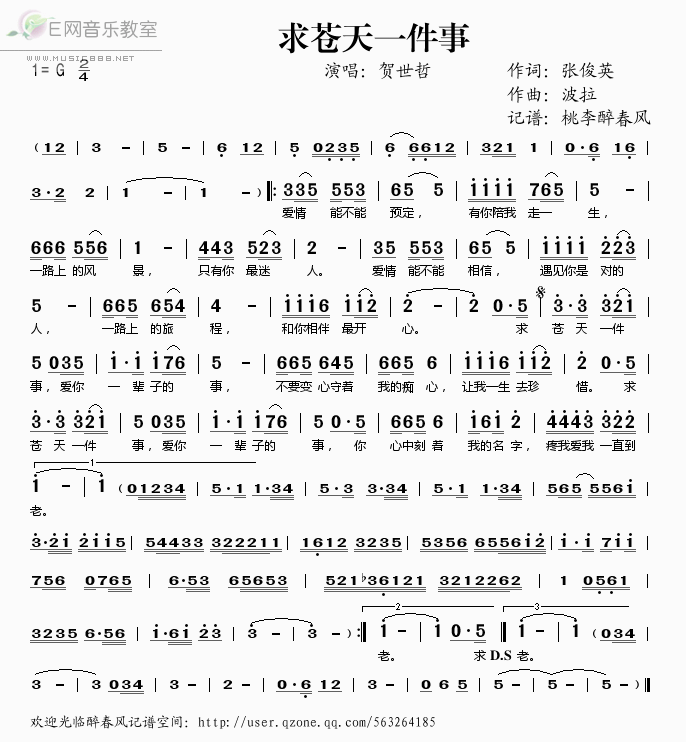 E网音乐教室
www.music888.net
求苍天一件事
1=G 2/4
演唱：贺世哲
作词：张俊英
作曲：波拉
记谱：桃李醉春风
(12 | 3 - | 5 - | 6 12 | 5 0235 | 6 6612 | 321 1 | 0·6 16 |
3·2 2 | 1 - | 1 - ) |: 335 553 | 65 5 | 1111 765 | 5 - |
爱情 能不能 预定， 有你陪我 走一 生，
666 556 | 1 - | 443 523 | 2 - | 35 553 | 65 5 | 1111 223 |
一路上 的风 景， 只有你 最迷 人。 爱情 能不能 相信， 遇见你是 对的
5 - | 665 654 | 5 - | 1116 112 | 2 - | 2 0·5 | 3·3 321 |
人， 一路上 的旅 程， 和你相伴 最开 心。 求 苍 天 一件
5 035 | 1·1 176 | 5 - | 665 645 | 665 6 | 1116 112 | 2 0·5 |
事，爱你 一 辈子的 事， 不要变 心守着 我的痴 心，让我一生 去珍 惜。 求
3·3 321 | 5 035 | 1·1 176 | 5 0·5 | 665 6 | 161 2 | 4443 322 |
苍 天 一件 事，爱你 一 辈子的 事， 你 心中刻 着 我的名 字，疼我爱我 一直到
1
1 - | 1 (01234 | 5·1 1·34 | 5·3 3·34 | 5·1 1·34 | 565 5561 |
老。
3·21 2115 | 54433 322211 | 1612 3235 | 5356 655612 | 1·1 711 |
756 0765 | 6·53 65653 | 521♭36121 3212262 | 1 0561 |
3235 6·56 | 1·61 23 | 3 - | 3 - ) :|
2
1 - | 1 0·5 ||
3
1 - | 1 (034 |
老。 求 D.S 老。
3 - | 3 034 | 3 - | 2 - | 0·6 12 | 0 65 | 5 - | 5 - ||
欢迎光临醉春风记谱空间：http://user.qzone.qq.com/563264185